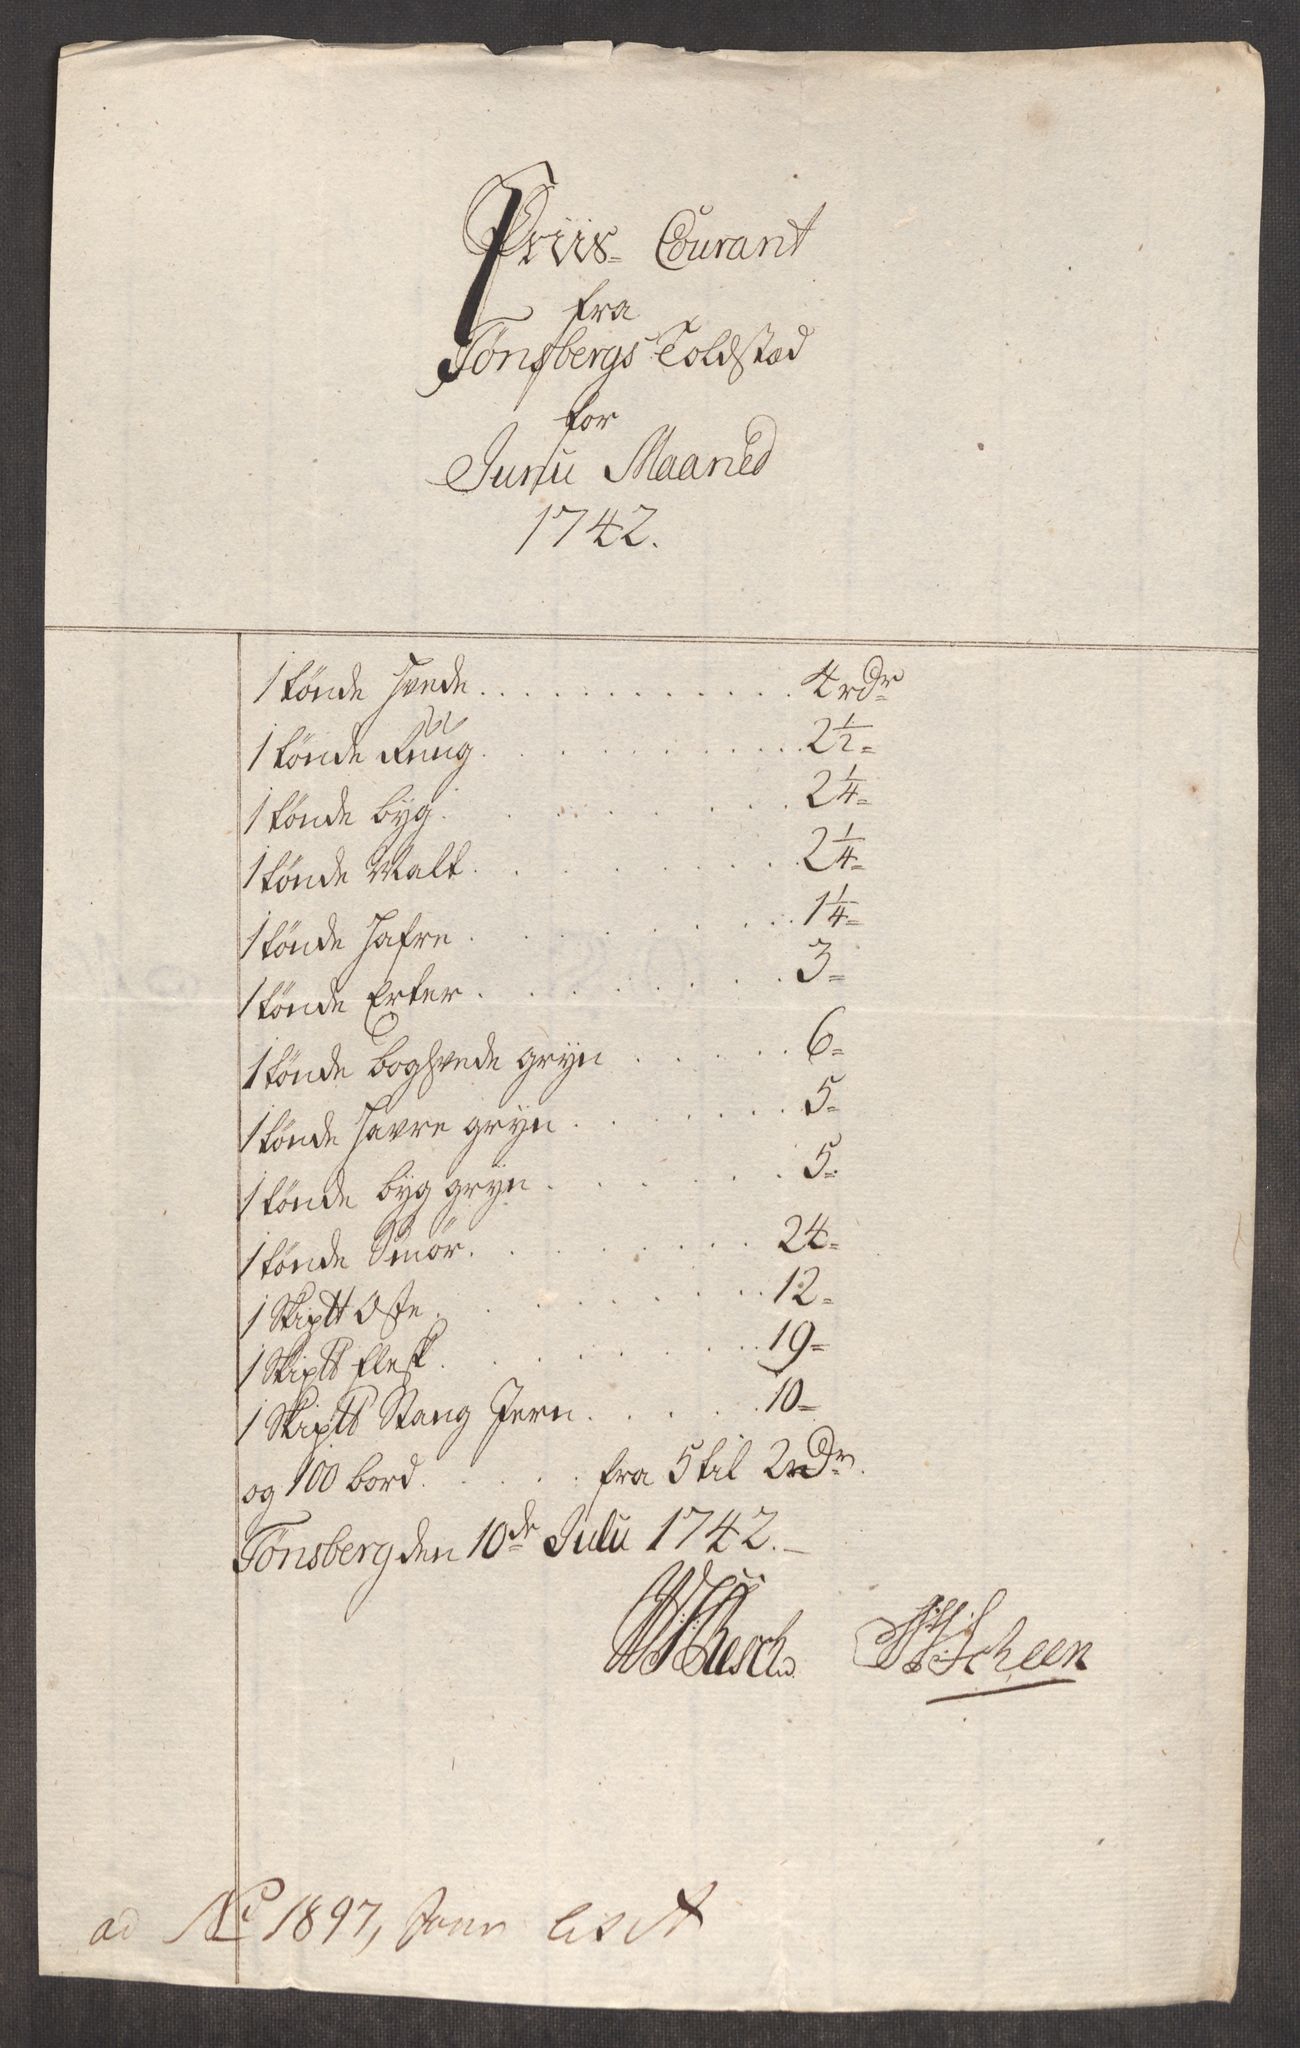 Priis- Courant
fra
Tønsbergs Toldstæd
for
Junii Maaned
1742.
1 tønde Hvede . . . . . . . . . . . . 4 rdr
1 tønde Rüüg . . . . . . . . . . 2 1/2=
1 tønde byg . . . . . . . . 2 1/4=
1 tønde Malt . . . . . . . . 2 1/4=
1 tønde Hafre . . . . . . . . 1 1/4=
1 tønde Erter . . . . . . . . 3=
1 tønde boghvede gryn . . . . . 6=
1 tønde Havre gryn . . . . . . . 5=
1 tønde byg gryn . . . . . . 5=
1 tønde Smør . . . . . . . . 24=
1 Skiptt Oste . . . . . . . . . 12=
1 Skiptt flesk . . . . . . . . 19=
1 Skiptt Stang Jern . . . . . 10=
og 100 bord . . . . . fra 5 til 2 rdr.
Tønsberg den 10de Julii 1742.
Resch. Scheen
ad No 1897,